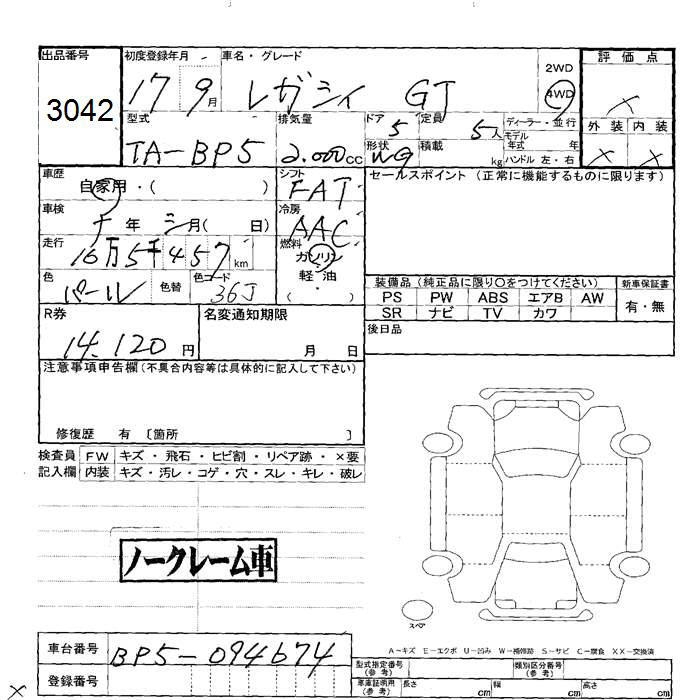 出品番号 初度登録年月 車名・グレード 評価点
3042 17 9月 レガシィ GT 2WD 4WD ×
型式 排気量 ドア 5 定員 5人 ディーラー・並行 外装 内装
TA-BP5 2.000cc 形状 WG 積載 kg モデル年式 年 ハンドル 左・右 × ×
車歴 自家用・( ) シフト FAT セールスポイント (正常に機能するものに限ります)
車検 年 月( 日) 冷房 AAC
走行 16万5千457km 燃料 ガソリン
軽・油
( )
色 パール 色替 色コード 36J
装備品 (純正品に限り〇をつけてください) 新車保証書
PS PW ABS エアB AW 有・無
SR ナビ TV カワ
R券 14.120円 名変通知期限 月 日 後日品
注意事項申告欄(不具合内容等は具体的に記入して下さい)
修復歴 有 〔箇所 〕
検査員 FW キズ・飛石・ヒビ割・リペア跡・×要
記入欄 内装 キズ・汚レ・コゲ・穴・スレ・キレ・破レ
ノークレーム車
スペア
A-キズ E-エクボ U-凹み W-補修跡 S-サビ C-腐食 XX-交換済
車台番号 BP5-094674 型式指定番号(参考) 類別区分番号(参考)
登録番号 車庫証明用(参考) 長さ cm 幅 cm 高さ cm
×